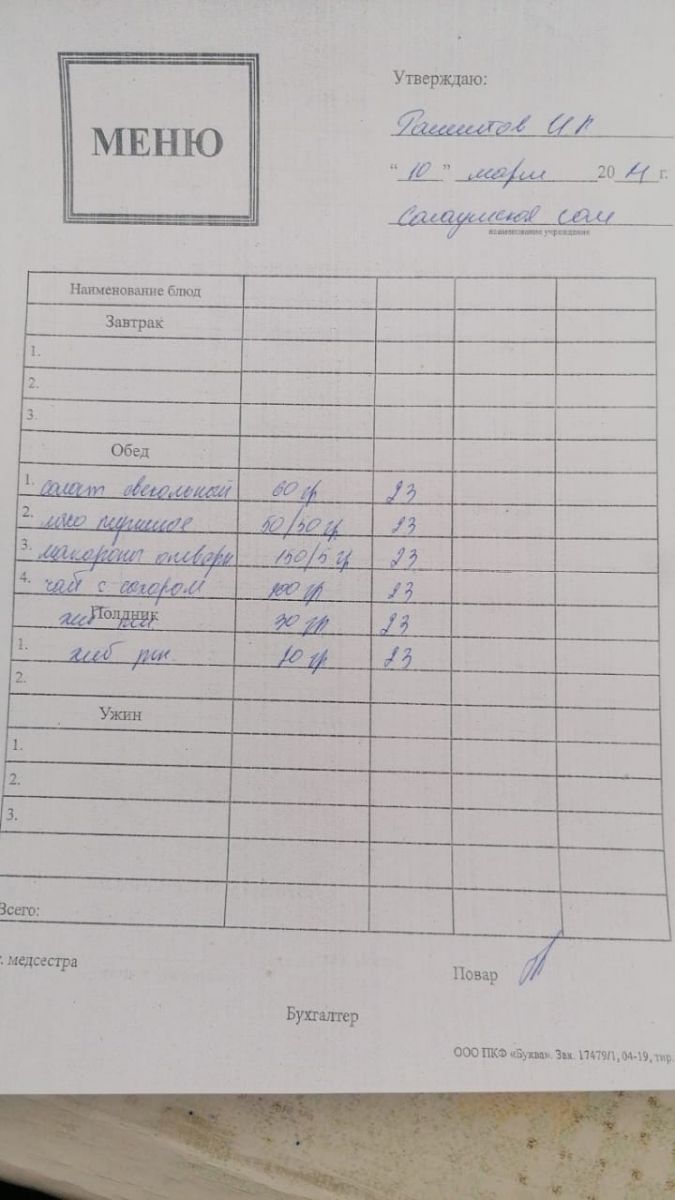 МЕНЮ
Утверждаю:
"10" марта 20 г.
наименование учреждения
Наименование блюд
Завтрак
1.
2.
3.
Обед
1. салат свекольный 60 гр 23
2. мясо 50/50 гр 23
3. макароны отварн 150/5 гр 23
4. чай с сахаром 200 гр 23
Полдник
хлеб 30 гр 23
1. хлеб рж. 20 гр 23
2.
Ужин
1.
2.
3.
Всего:
. медсестра
Повар
Бухгалтер
ООО ПКФ «Буква». Зак. 17479/1, 04-19, тир.